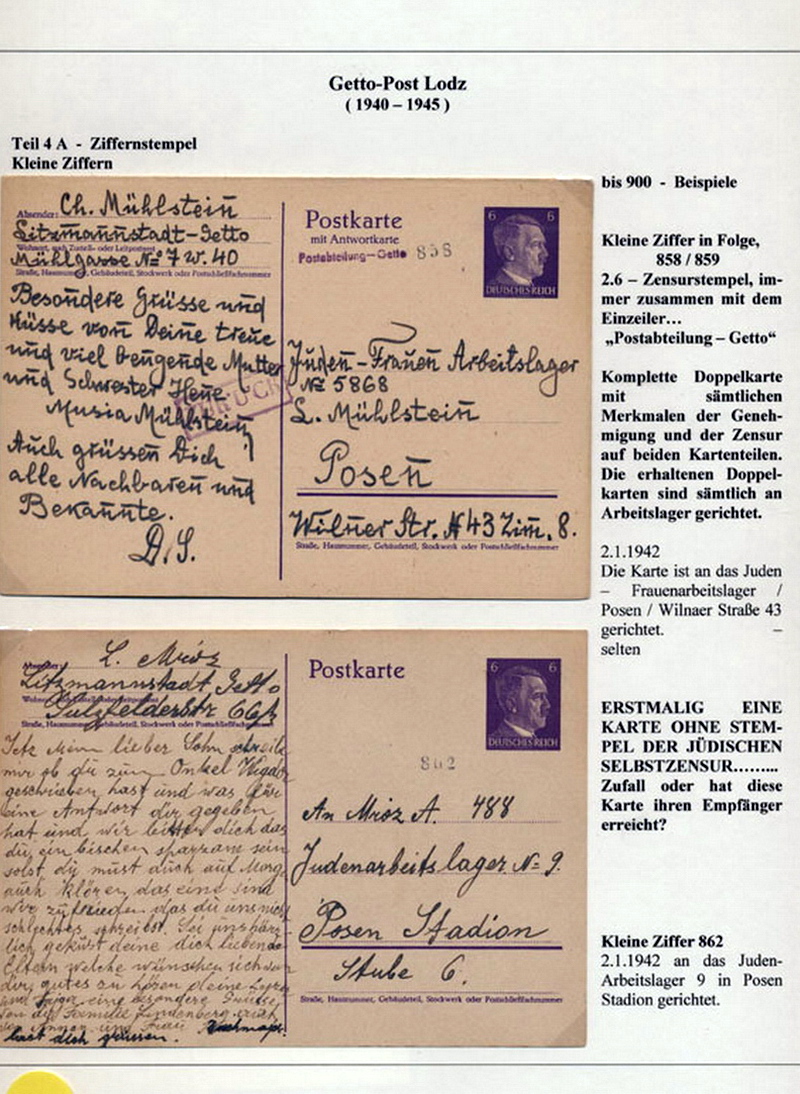 Getto-Post Lodz
( 1940 – 1945 )
Teil 4 A - Ziffernstempel
Kleine Ziffern
bis 900 - Beispiele
Absender: Ch. Mühlstein
Litzmannstadt-Getto
Wohnort, auch Zustell- oder Leitpostamt
Mühlgasse No 7 W. 40
Straße, Hausnummer, Gebäudeteil, Stockwerk oder Postschließfachnummer
Besondere Grüsse und
Küsse von Deine treue
und viel beugende Mutter
und Schwester Hene
Musia Mühlstein
Auch grüssen Dich
alle Nachbaren und
Bekannte.
D.S.
Postkarte
mit Antwortkarte
Postabteilung-Getto 858
6 6
DEUTSCHES REICH
Juden-Frauen Arbeitslager
No 5868
L. Mühlstein
Posen
Wilner Str. N 43 Zim. 8.
Straße, Hausnummer, Gebäudeteil, Stockwerk oder Postschließfachnummer
Kleine Ziffer in Folge,
858 / 859
2.6 – Zensurstempel, im-
mer zusammen mit dem
Einzeiler…
„Postabteilung – Getto“
Komplette Doppelkarte
mit sämtlichen
Merkmalen der Geneh-
migung und der Zensur
auf beiden Kartenteilen.
Die erhaltenen Doppel-
karten sind sämtlich an
Arbeitslager gerichtet.
2.1.1942
Die Karte ist an das Juden
– Frauenarbeitslager /
Posen / Wilnaer Straße 43
gerichtet. –
selten
Absender: L. Mróz
Litzmannstadt, Getto
Sulzfelderstr 66/
Straße, Hausnummer, Gebäudeteil, Stockwerk oder Postschließfachnummer
Jetz mein lieber Sohn schreib
mir ob du zum Onkel
geschrieben hast und was für
eine Antwort dir gegeben
hat und wir bitten dich das
du ein bischen sparzam sein
solst du must auch auf
auch klären das eine sind
wir zufrieden das du uns nich
schlechtes schreibst. Sei uns härz
lich geküst deine dich liebende
Eltern welche wünschen sich von
dir gutes zu hören deine
und eine besondere Grüsse
von die Familie Lindenberg auch
und Frau
hast dich grüssen.
Postkarte
6 6
DEUTSCHES REICH
862
An Mróz A. 488
Judenarbeitslager No 9.
Posen Stadion
Stube 6.
Straße, Hausnummer, Gebäudeteil, Stockwerk oder Postschließfachnummer
ERSTMALIG EINE
KARTE OHNE STEM-
PEL DER JÜDISCHEN
SELBSTZENSUR……...
Zufall oder hat diese
Karte ihren Empfänger
erreicht?
Kleine Ziffer 862
2.1.1942 an das Juden-
Arbeitslager 9 in Posen
Stadion gerichtet.